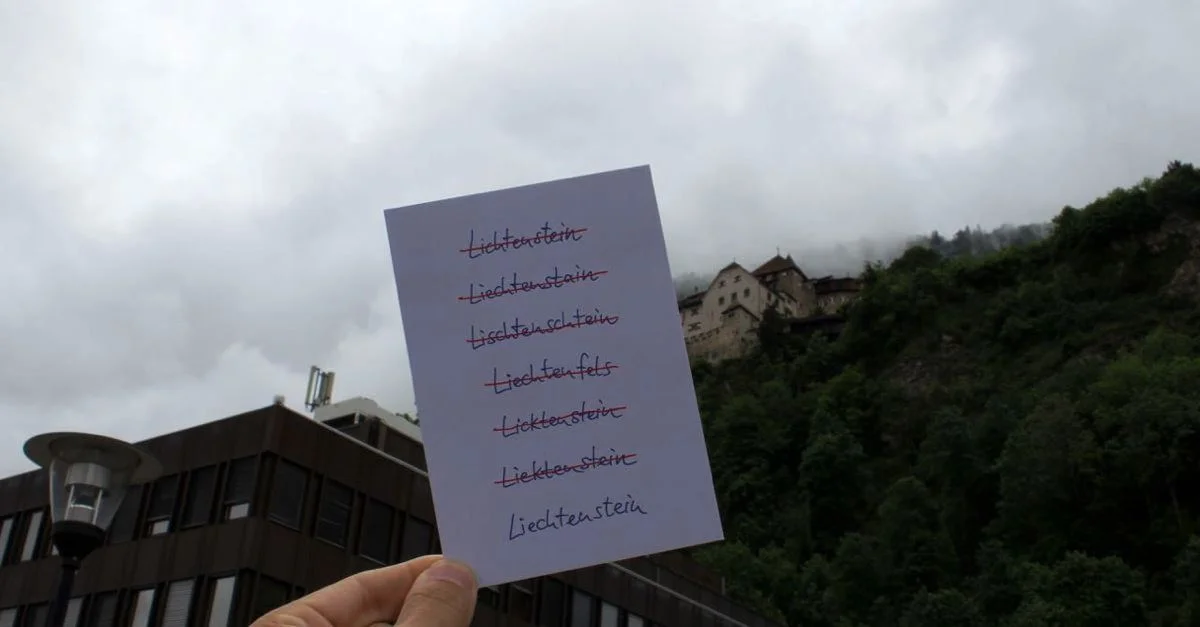 Lichtenstein
Liechtenstain
Lischtenschtein
Liechtenfels
Licktenstein
Liektenstein
Liechtenstein